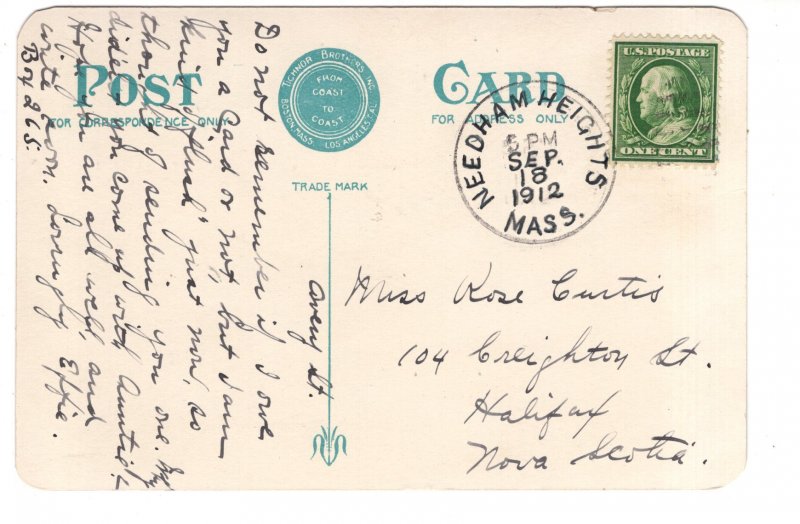 POST CARD
FOR CORRESPONDENCE ONLY
FOR ADDRESS ONLY
TICHNOR BROTHERS INC.
BOSTON, MASS. LOS ANGELES, CAL.
FROM
COAST
TO
COAST
TRADE MARK
NEEDHAM HEIGHTS
5 PM
SEP.
18
1912
MASS.
U.S. POSTAGE
ONE CENT
Avery St.
Do not remember if I owe
you a card or not, but I am
"flush" just now, so
thought of sending you one. Why
didn't you come up with Auntie?
Hope you are all well, and
write soon. Lovingly Effie.
Box 265
Miss Rose Curtis
104 Creighton St.
Halifax
Nova Scotia.